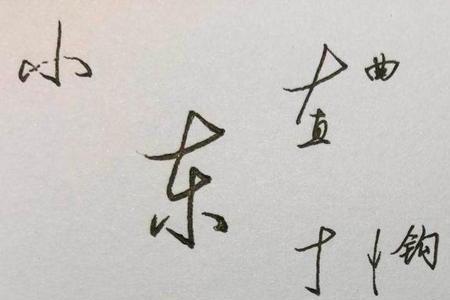 小
东
曲
直
钩